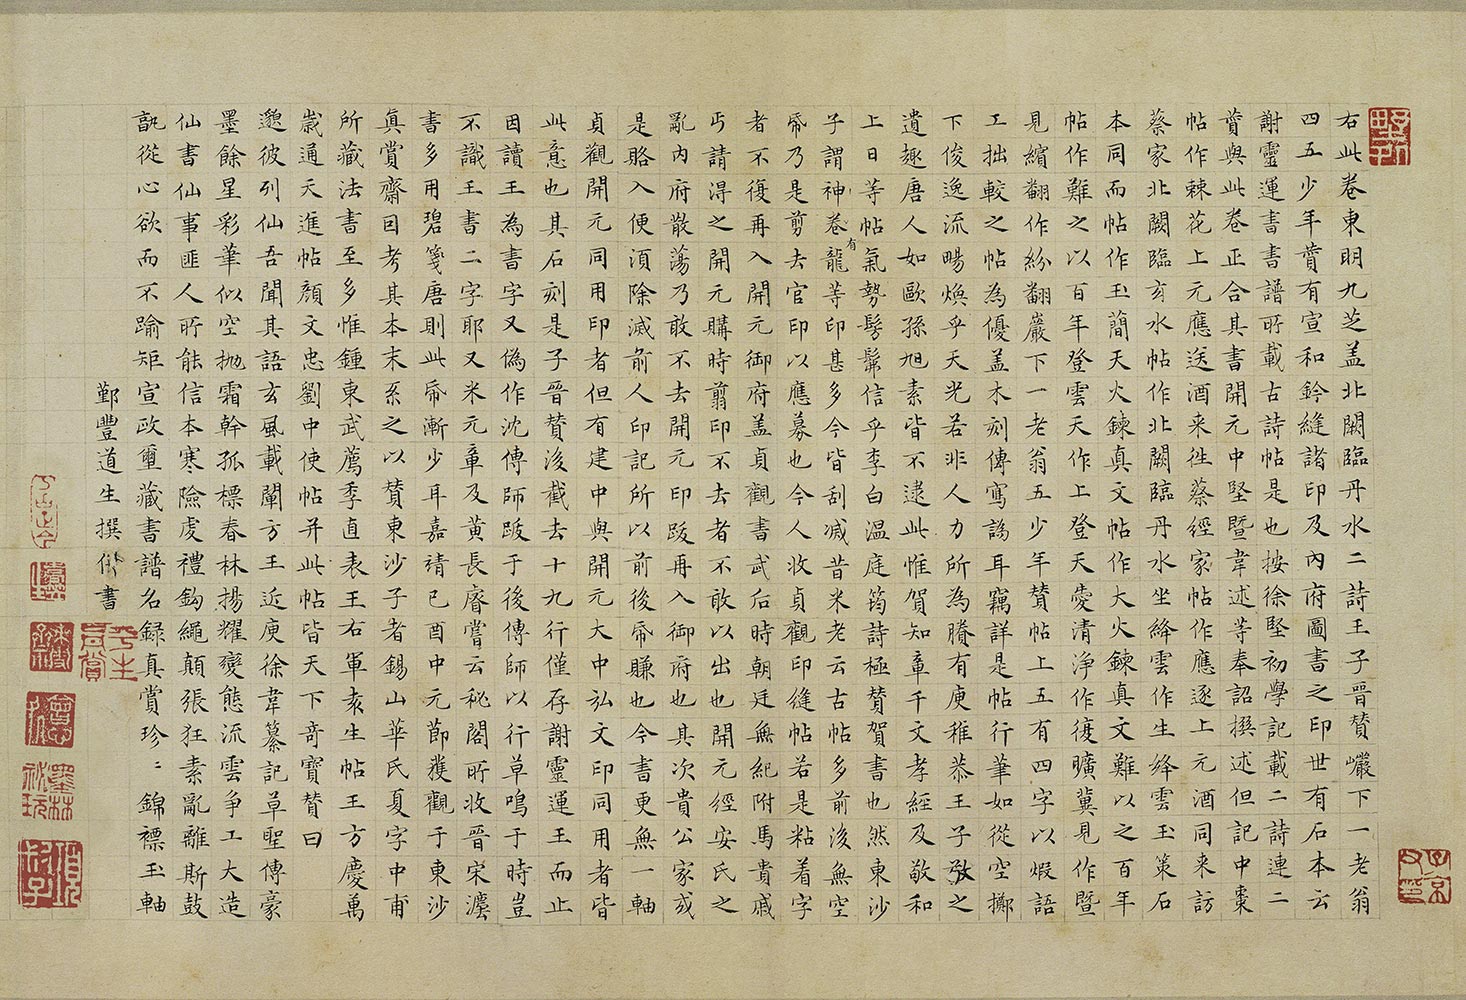 右此卷東明九芝盖北闕臨丹水二詩王子晉贊巗下一老翁
四五少年贊有宣和鈐縫諸印及內府圖書之印世有石本云
謝靈運書書譜所載古詩帖是也按徐堅初學記載二詩連二
贊與此卷正合其書開元中堅暨韋述等奉詔撰述但記中棗
帖作棘花上元應送酒来徃蔡經家帖作應逐上元酒同来訪
蔡家北闕臨玄水帖作北闕臨丹水坐絳雲作生絳雲玉策石
本同而帖作玉簡天火鍊真文帖作大火鍊真文難以之百年
帖作難之以百年登雲天作上登天愛清淨作復曠冀見作暨
見繽翻作紛翻巖下一老翁五少年贊帖上五有四字以煆語
工拙較之帖為優盖木刻傳寫譌耳竊詳是帖行筆如從空擲
下俊逸流暢煥乎天光若非人力所為賸有庾稚恭王子敬之
遺趣唐人如歐孫旭素皆不逮此惟賀知章千文孝經及敬和
上日等帖氣勢髣髴信乎李白温庭筠詩極贊賀書也然東沙
子謂神卷有龍等印甚多今皆刮滅昔米老云古帖多前後無空
帋乃是剪去官印以應募也今人收貞觀印縫帖若是粘着字
者不復再入開元御府盖貞觀書武后時朝廷無紀附馬貴戚
丐請淂之開元購時剪印不去者不敢以出也開元經安氏之
亂內府散蕩乃敢不去開元印跋再入御府也其次貴公家或
是賂入便湏除滅前人印記所以前後帋賺也今書更無一軸
貞觀開元同用印者但有建中與開元大中弘文印同用者皆
此意也其石刻是子晉贊後截去十九行僅存謝靈運王而止
因讀王為書字又偽作沈傳師跋于後傳師以行草鳴于時豈
不識王書二字耶又米元章及黄長睿嘗云秘閣所收晉宋灋
書多用碧箋唐則此帋漸少耳嘉靖己酉中元節獲觀于東沙
真賞齋因考其本末系之以贊東沙子者錫山華氏夏字中甫
所藏法書至多惟鍾東武薦季直表王右軍袁生帖王方慶萬
嵗通天進帖顔文忠劉中使帖并此帖皆天下竒寶贊曰
邈彼列仙吾聞其語玄風載闡方王近庾徐韋纂記草聖傳豪
墨餘星彩華似空抛霜幹孤標春林揚耀變態流雲争工大造
仙書仙事匪人所能信本寒險虔禮鈎繩顛張狂素亂離斯鼓
孰從心欲而不踰矩宣政璽藏書譜名録真賞珍〻錦褾玉軸
鄞豐道生撰併書
子京父印
墨林祕玩
平生真賞